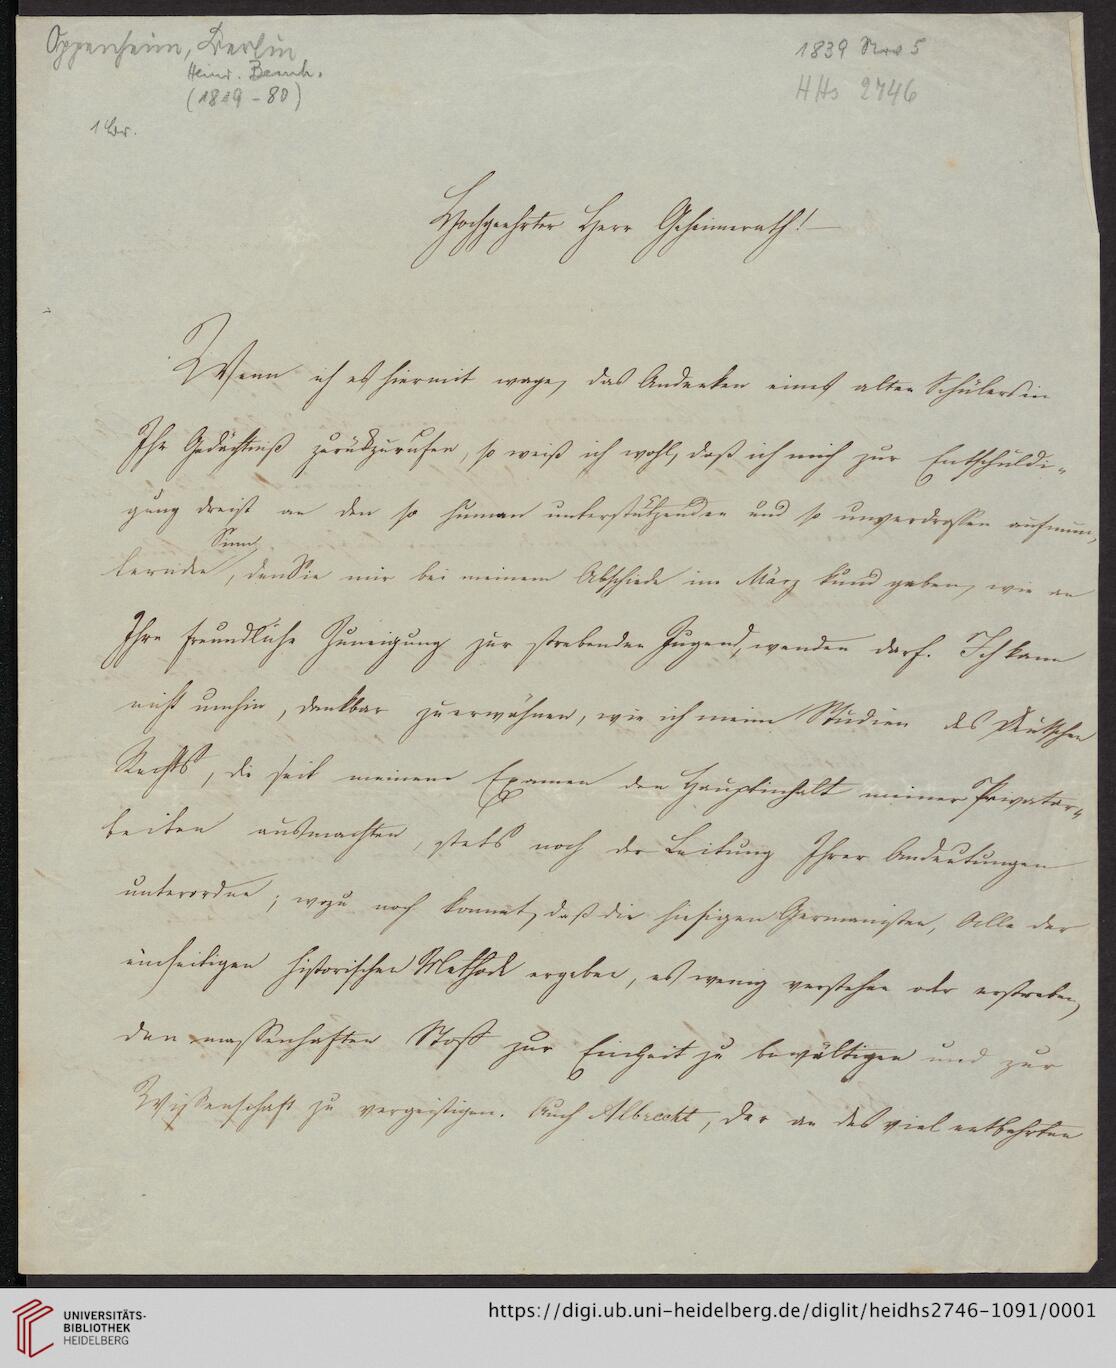 Oppenheim, Berlin
Heinr. Bernh.
(1819-80)
1 Br.
1839 Nov 5
HHs 2746
Hochgeehrter Herr Geheimerath! —
Wenn ich es hiermit wage, das Andenken eines alten Schülers in
Ihr Gedächtniß zurückzurufen, so weiß ich wohl, daß ich mich zur Entschuldi-
gung dreist an den so human unterstützenden und so unverdrossen aufmun-
Sinn,
ternden, den Sie mir bei meinem Abschiede im März kund gaben, wie an
Ihre freundliche Zuneigung zur strebenden Jugend, wenden darf. Ich kann
nicht umhin, dankbar zu erwähnen, wie ich meine Studien des Deutschen
Rechts, die seit meinem Examen den Hauptinhalt meiner Privatar-
beiten ausmachten, stets noch der Leitung Ihrer Andeutungen
unterordne; wozu noch kommt, daß die hiesigen Germanisten, Alle der
einseitigen historischen Methode ergeben, es wenig verstehen oder erstreben,
den massenhaften Stoff zur Einheit zu bewältigen und zur
Wissenschaft zu vergeistigen. Auch Albrecht, der an des viel entbehrten
UNIVERSITÄTS-
BIBLIOTHEK
HEIDELBERG
https://digi.ub.uni-heidelberg.de/diglit/heidhs2746-1091/0001